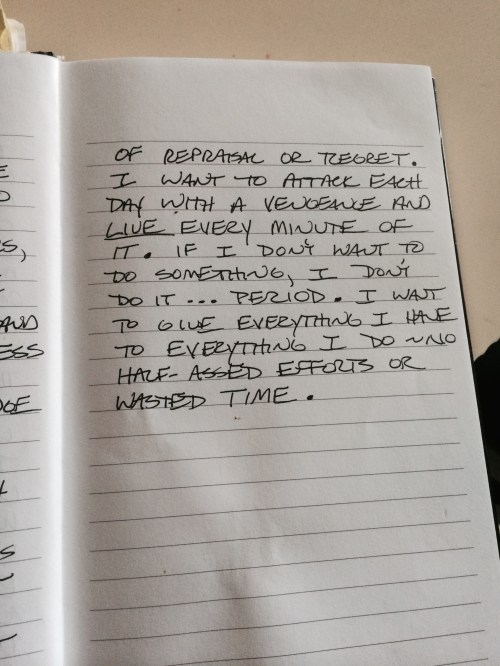 OF REPRAISAL OR REGRET.
I WANT TO ATTACK EACH
DAY WITH A VENGEANCE AND
LIVE EVERY MINUTE OF
IT. IF I DON'T WANT TO
DO SOMETHING, I DON'T
DO IT ... PERIOD. I WANT
TO GIVE EVERYTHING I HAVE
TO EVERYTHING I DO ~ NO
HALF-ASSED EFFORTS OR
WASTED TIME.